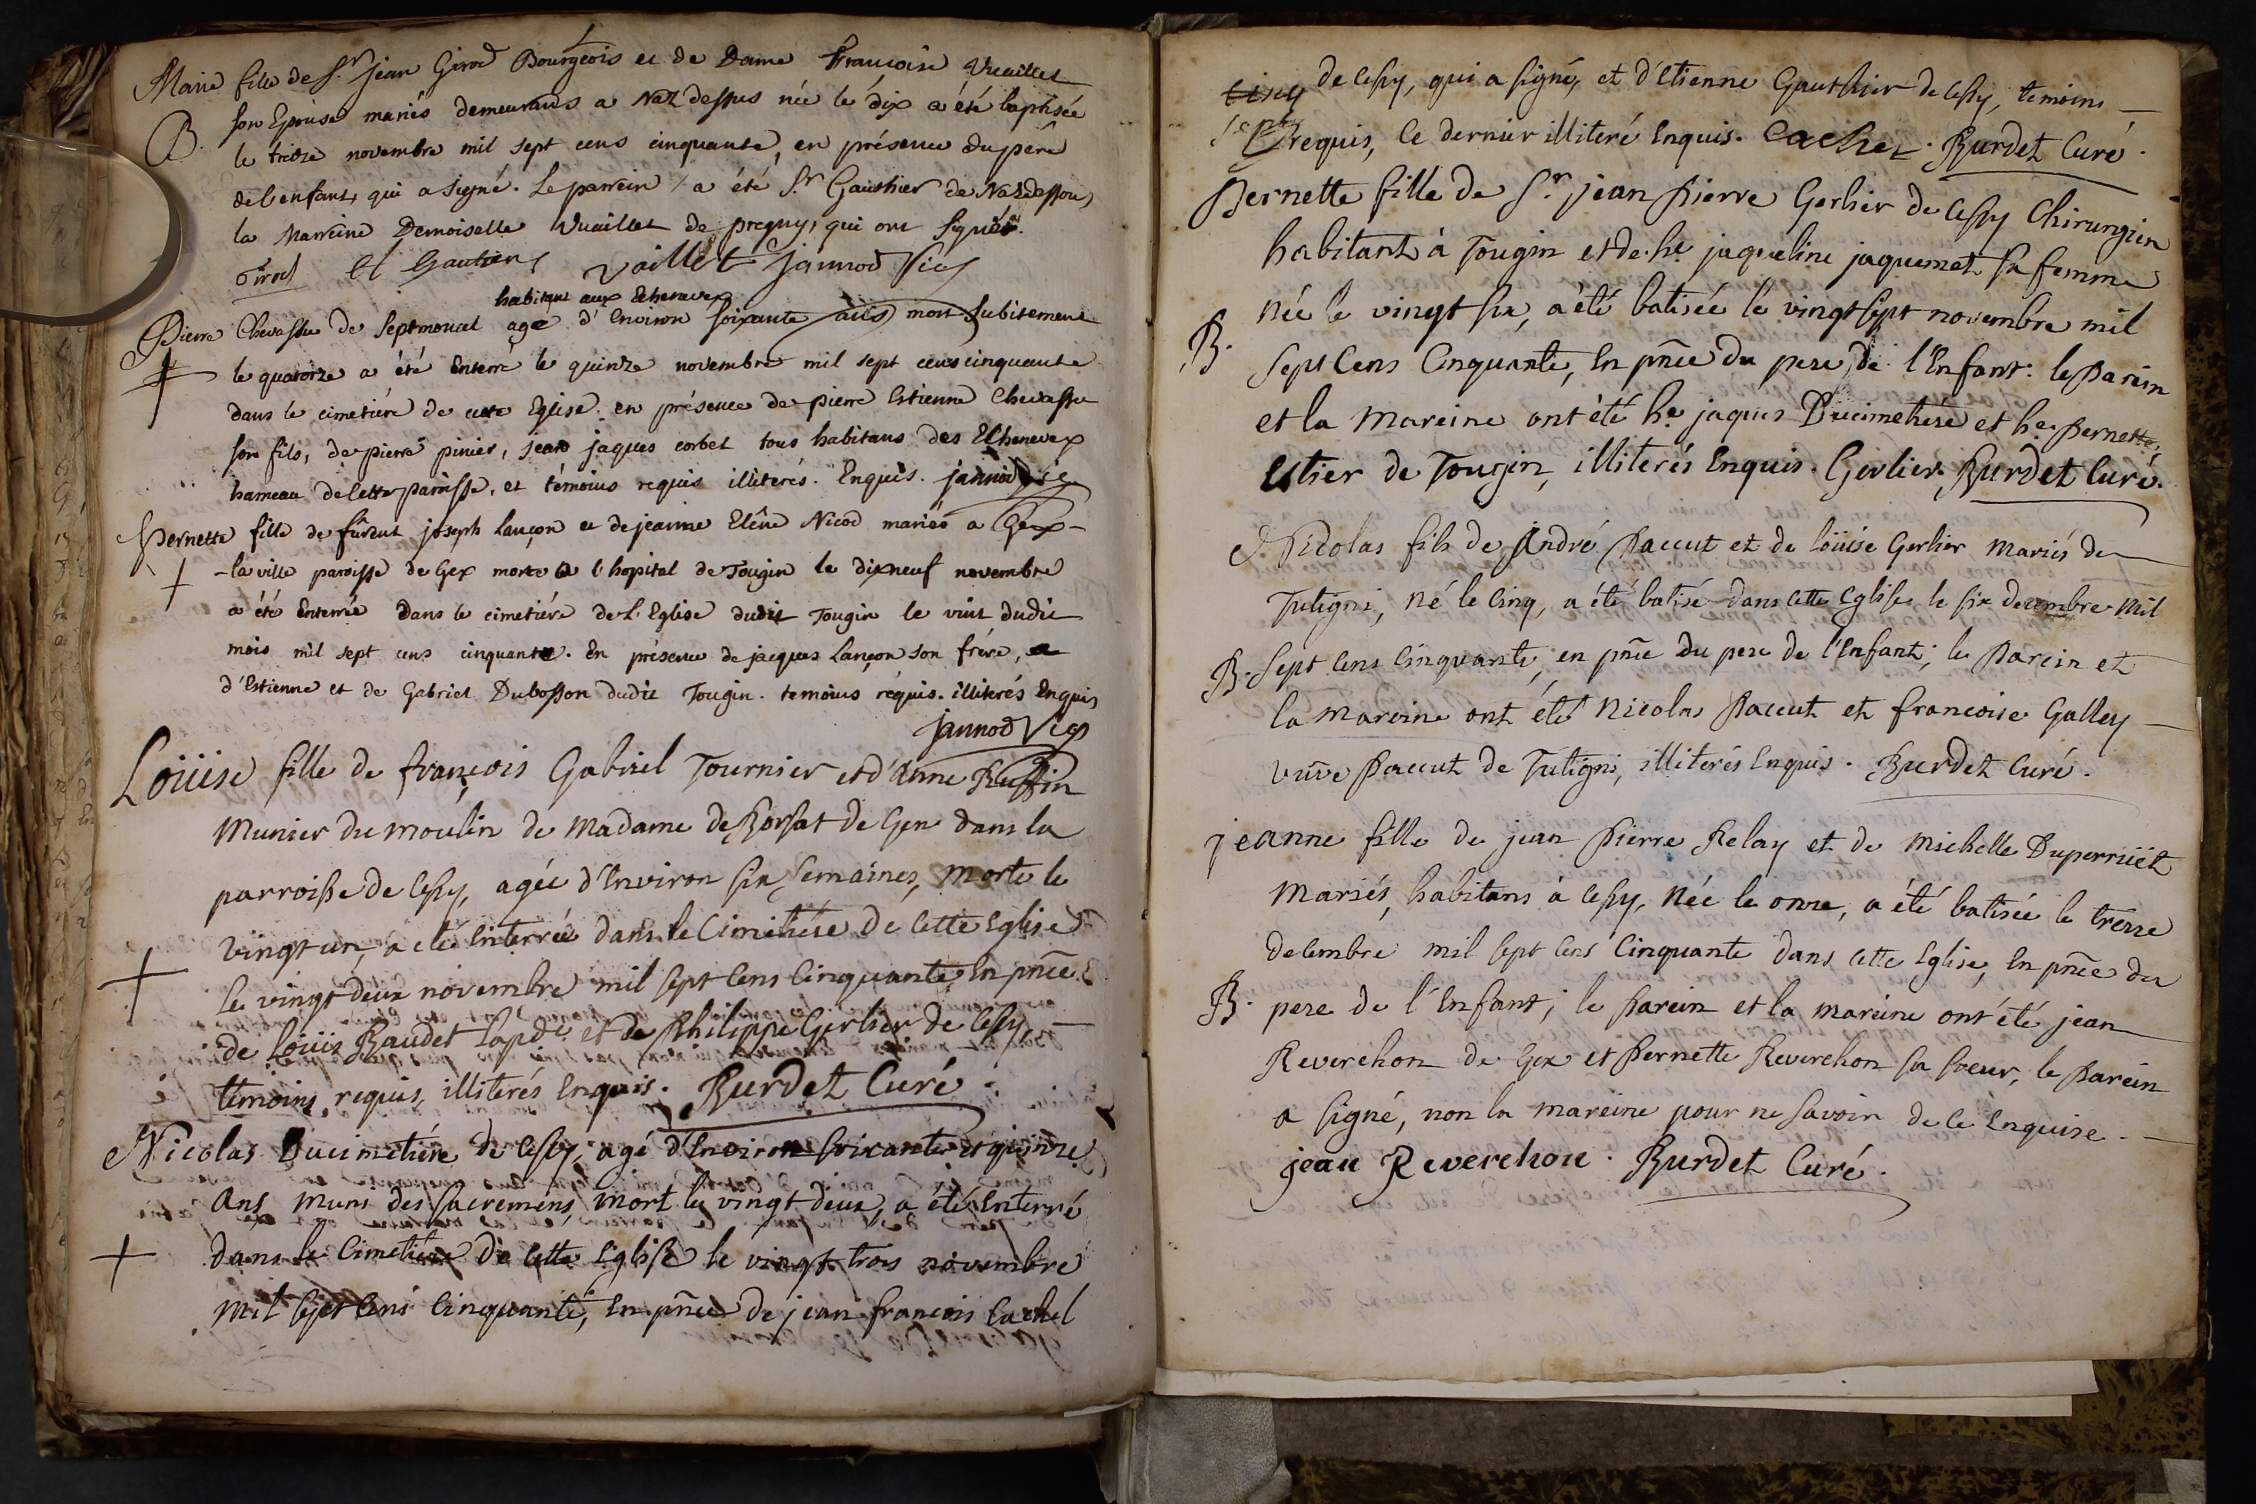 Marie fille de S.r jean Girod Bourgeois et de Dame francoise Vuaillet
B. son Epouse mariés demeurants a Naz dessus née le dix a été baptisée
le treize novembre mil sept cens cinquante, en présence du pere
de l'enfant, qui a signé. Le parrein a été S.r Gauthier de Naz dessous
la Marreine Demoiselle Vuaillet de pregny, qui ont signés.
Girod Gautier vaillet jannod Vic
habitant aux Echenevex
Pierre Chevassu de Septmoncel agé d'Environ soixante ans mort subitement
le quatorze a été Enterré le quinze novembre mil sept cens cinquante
dans le cimetière de cette Eglise. en présence de pierre Estienne Chevassu
son fils, de pierre pinier, jean jaques corbet tous habitans des Echenevex
hameau de cette paroisse, et témoins requis illiterés. Enquis. jannod vic
Pernette fille de fûrent joseph Lançon et de jeanne Elêne Nicod mariés a Gex
la ville paroisse de Gex morte a l'hopital de Tougin le dixneuf novembre
a été Enterrée dans le cimetière de L'Eglise dudit Tougin le vint dudit
mois mil sept cens cinquante. En présence de jacques Lançon son frére, et
d'Estienne et de Gabriel Dubosson dudit Tougin. temoins réquis. illiterés Enquis
jannod Vic
Loüise fille de françois Gabriel Tournier et d'Anne Ruffin
Munier du moulin de Madame de Borsat de Gex dans la
parroisse de Cessy, agée d'Environ six semaines, morte le
vingt un, a eté Enterrée dans le Cimetiére de Cette Eglise
le vingt deux novembre mil sept Cens Cinquante, En pñce
de Loüis Baudet Lapd.e et de Philippe Gerlier de Cessy
témoins requis, illiterés Enquis. Burdet Curé.
Nicolas Ducimetiére de Cessy, agé d'Environ soixante et quinze
ans muni des sacremens, mort le vingt deux, a été Enterré
dans le Cimetiére de cette Eglise le vingt trois novembre
mil sept Cens Cinquante, En pñce de jean françois Cachel
de Cessy, qui a signé, et d'Etienne Gauthier de Cessy, temoins
requis, Ce dernier illiteré Enquis. Cachet. Burdet Curé.
Pernette fille de S.r jean Pierre Gerlier de Cessy Chirurgien
habitant à Tougin et de h.e jaqueline jaquemet sa femme
Née le vingt six, a été batisée le vingt sept novembre mil
B. Sept Cens Cinquante, En pñce du pere de l'Enfant: le Parein
et la Mareine ont été h.e jaques Ducimetiére et h.e Pernette
Estier de Tougin, illiterés Enquis. Gerlier. Burdet Curé.
Nicolas fils de André Paccut et de Loüise Gerlier Mariés de
Tutigni, Né le Cinq, a été batisé dans cette Eglise le six decembre Mil
B. Sept Cens Cinquante, en pñce du pere de l'Enfant; le Parein et
la mareine ont été Nicolas Paccut et francoise Galley
vuve Paccut de Tutigni, illiterés Enquis. Burdet Curé.
jeanne fille de jean Pierre Relay et de Michelle Duperriiet
Mariés, habitans à Cessy, Née le onze, a été batisée le treize
decembre mil sept Cens Cinquante dans cette Eglise, En pñce du
B. pere de l'Enfant; le Parein et la mareine ont été jean
Reverchon de Gex et Pernette Reverchon sa soeur, le Parein
a signé, non la mareine pour ne savoir de ce Enquise.
jean Reverchon. Burdet Curé.